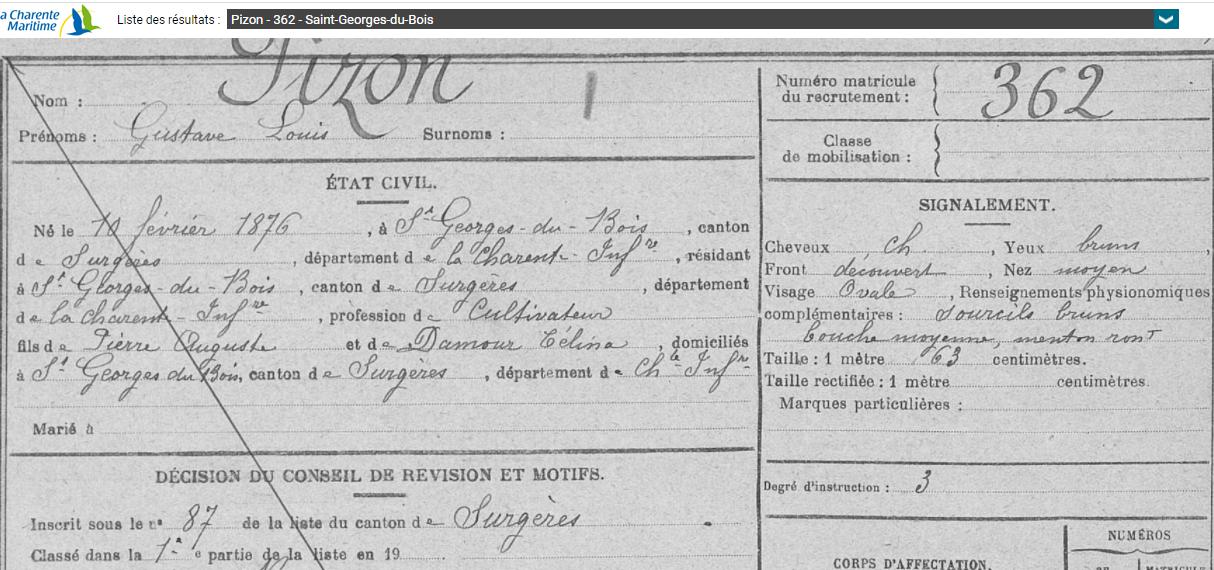 la Charente
Maritime
Liste des résultats : Pizon - 362 - Saint-Georges-du-Bois
Nom : Pizon
Prénoms : Gustave Louis Surnoms :
ÉTAT CIVIL.
Né le 10 février 1876, à St Georges-du-Bois, canton
de Surgères, département de la Charent-Infre, résidant
à St Georges-du-Bois, canton de Surgères, département
de la Charent-Infre, profession de Cultivateur
fils de Pierre Auguste et de Damour Célina, domiciliés
à St Georges du Bois, canton de Surgères, département de Chte Infre
Marié à
DÉCISION DU CONSEIL DE REVISION ET MOTIFS.
Inscrit sous le n° 87 de la liste du canton de Surgères
Classé dans la 1e partie de la liste en 19
Numéro matricule
du recrutement : 362
Classe
de mobilisation :
SIGNALEMENT.
Cheveux ch, Yeux bruns,
Front découvert, Nez moyen
Visage Ovale, Renseignements physionomiques
complémentaires : Sourcils bruns
bouche moyenne, menton ront
Taille : 1 mètre 63 centimètres.
Taille rectifiée : 1 mètre centimètres.
Marques particulières :
Degré d'instruction : 3
CORPS D'AFFECTATION.
NUMÉROS
MATRICULE